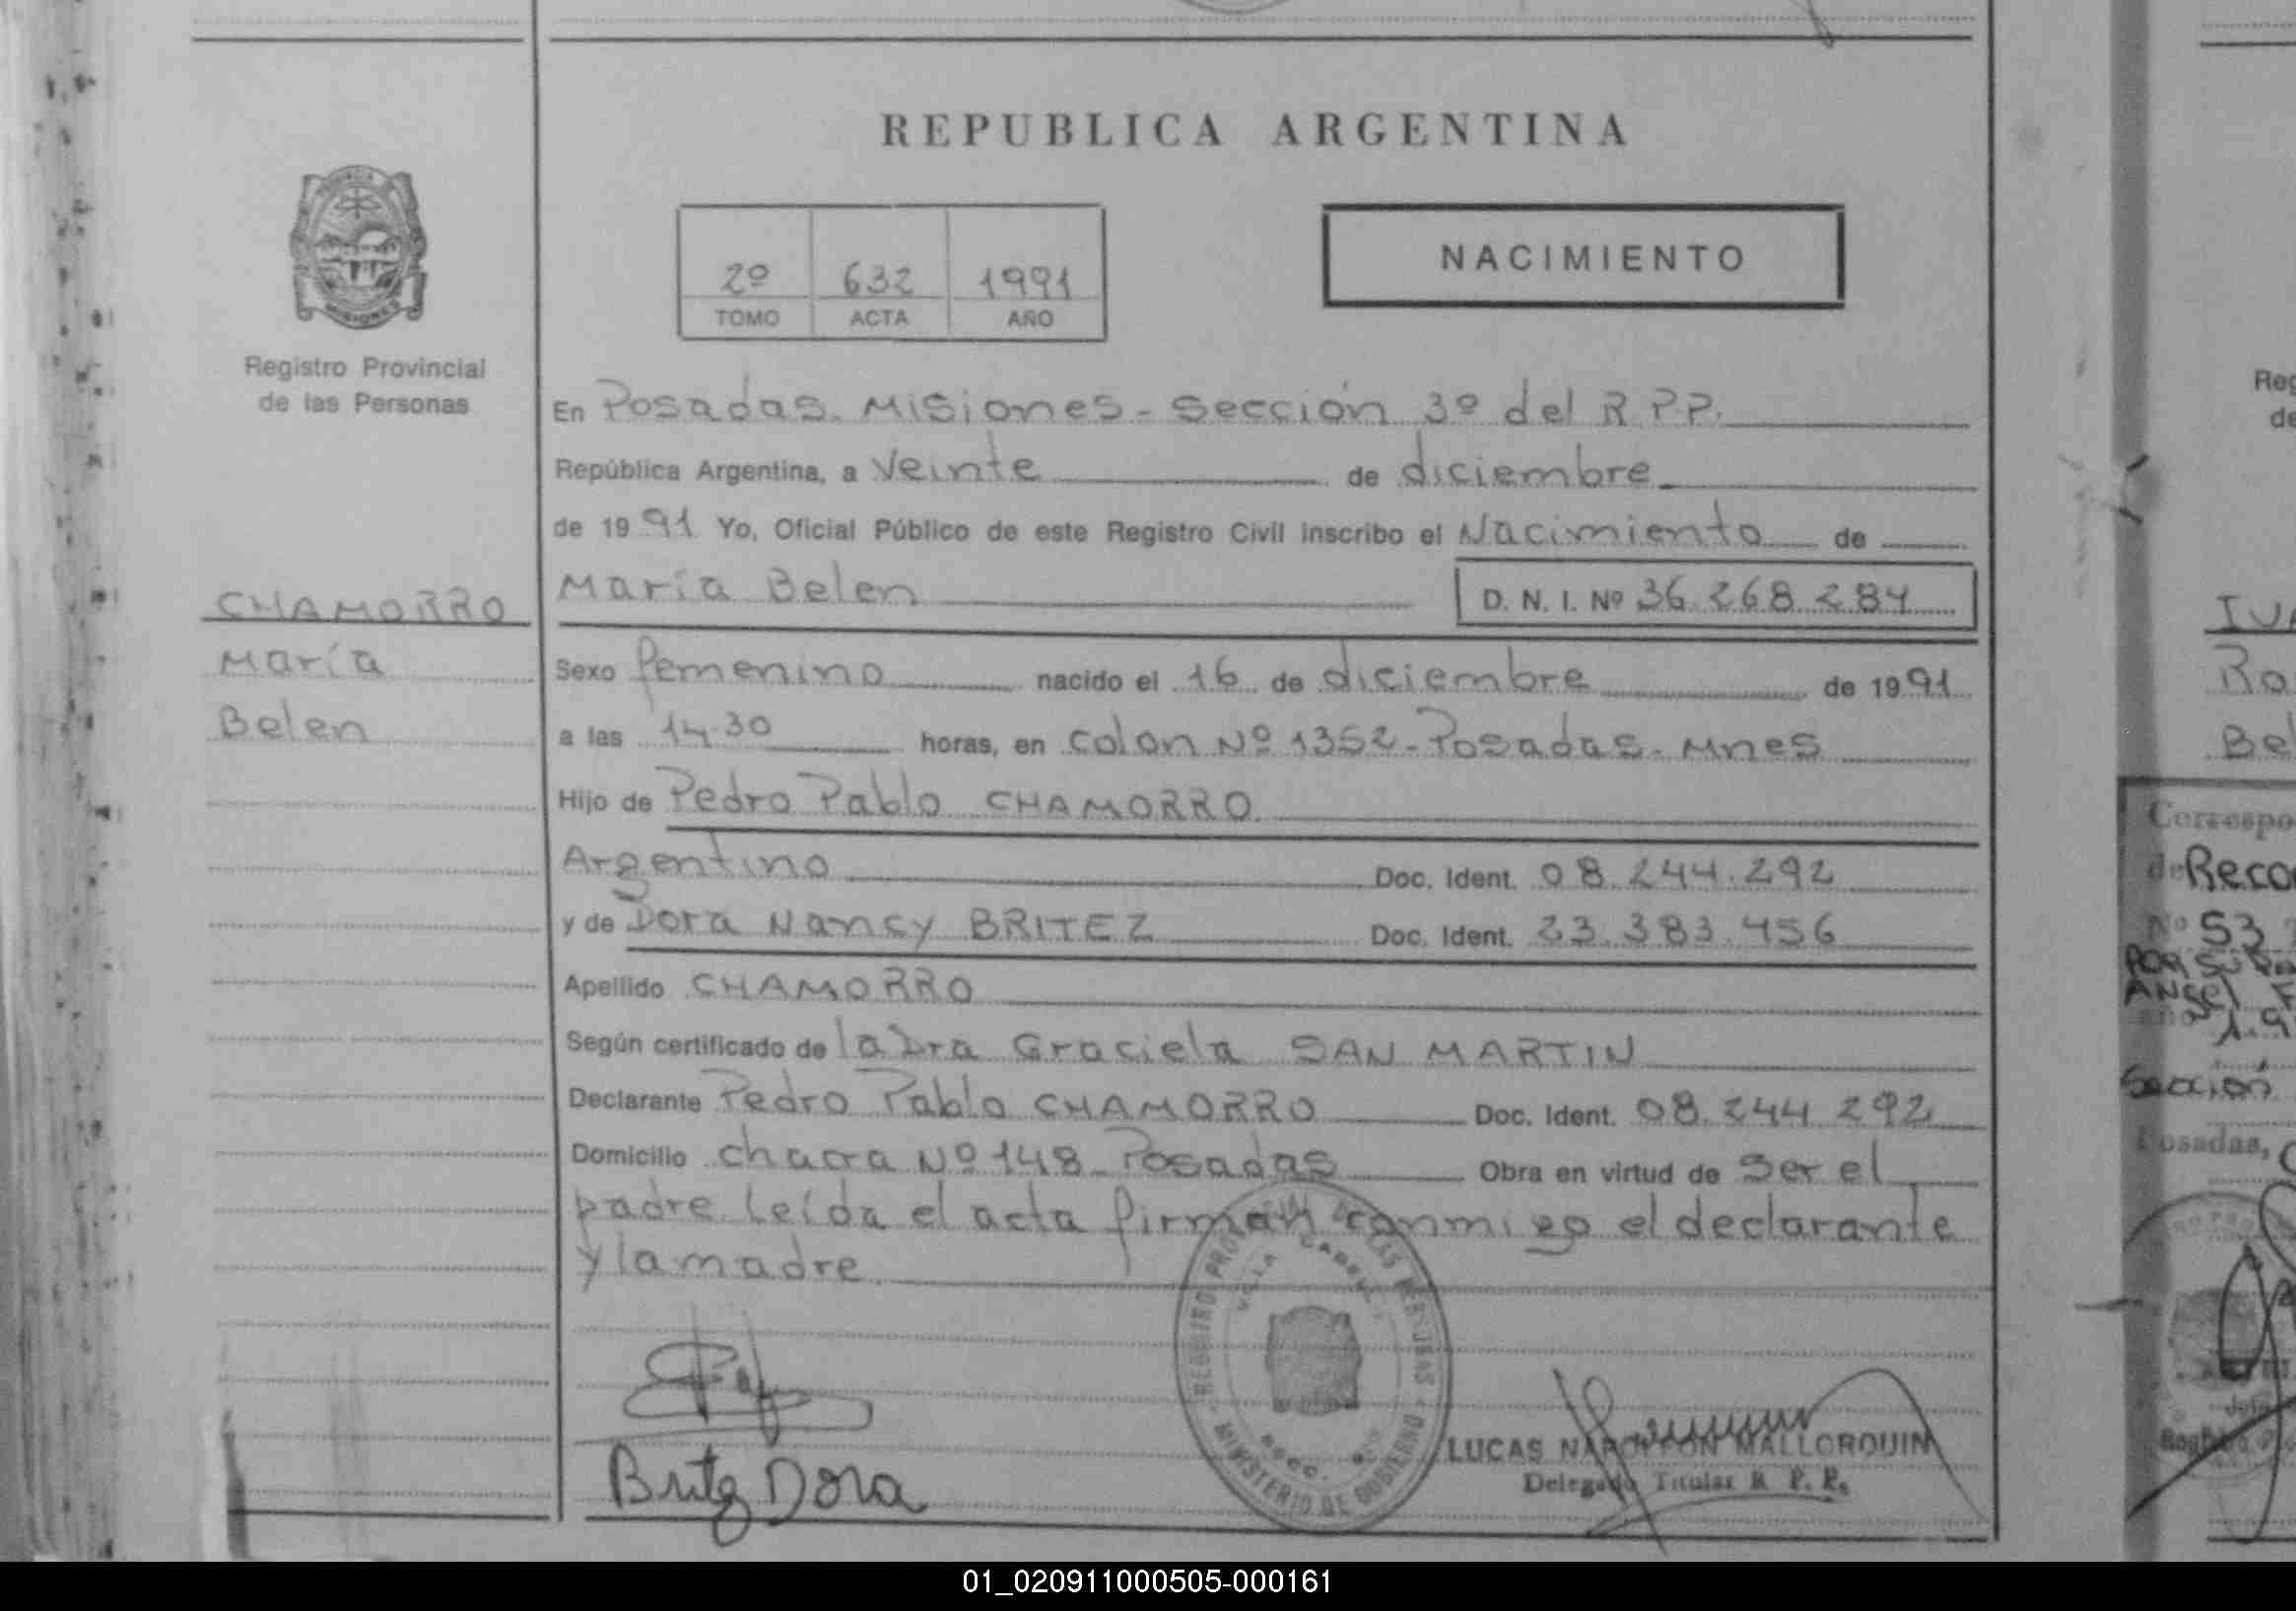 REPUBLICA ARGENTINA
NACIMIENTO
2º 632 1991
TOMO ACTA AÑO
MISIONES
Registro Provincial
de las Personas
CHAMORRO
María
Belen
En Posadas. Misiones - Sección 3º del R.P.P.
República Argentina, a Veinte de diciembre
de 1991 Yo, Oficial Público de este Registro Civil inscribo el Nacimiento de
María Belen D. N. I. Nº 36.268.284
Sexo femenino nacido el 16 de diciembre de 1991
a las 14.30 horas, en Colon Nº 1352 - Posadas - Mnes
Hijo de Pedro Pablo CHAMORRO
Argentino Doc. Ident. 08.244.292
y de Dora Nancy BRITEZ Doc. Ident. 23.383.456
Apellido CHAMORRO
Según certificado de la Dra Graciela SAN MARTIN
Declarante Pedro Pablo CHAMORRO Doc. Ident. 08.244.292
Domicilio chacra Nº 148 - Posadas Obra en virtud de Ser el
padre. Leída el acta firman conmigo el declarante
y la madre.
Britez Dora
MINISTERIO DE GOBIERNO
LUCAS NAPOLEON MALLORQUIN
Delegado Titular R. P. P.
Reco
Nº 53
Sección
Posadas,
01_020911000505-000161